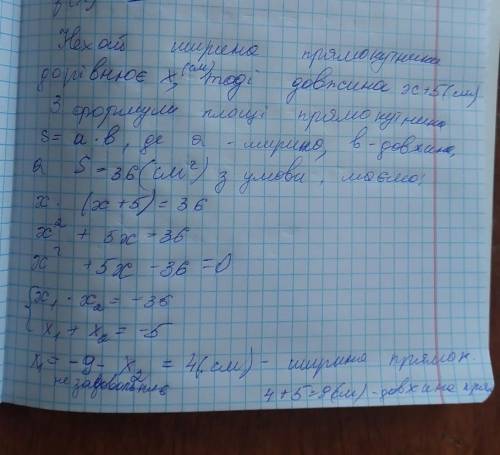 Нехай ширина прямокутника
дорівнює x(см), тоді довжина x+5(см)
З формули площі прямокутника
S = a · в, де a - ширина, в - довжина,
а S = 36(см²) з умови, маємо:
x · (x + 5) = 36
x² + 5x = 36
x² + 5x - 36 = 0
x₁ · x₂ = -36
x₁ + x₂ = -5
x₁ = -9 x₂ = 4(см) - ширина прямок
не задовольняє 4 + 5 = 9(см) - довжина пря